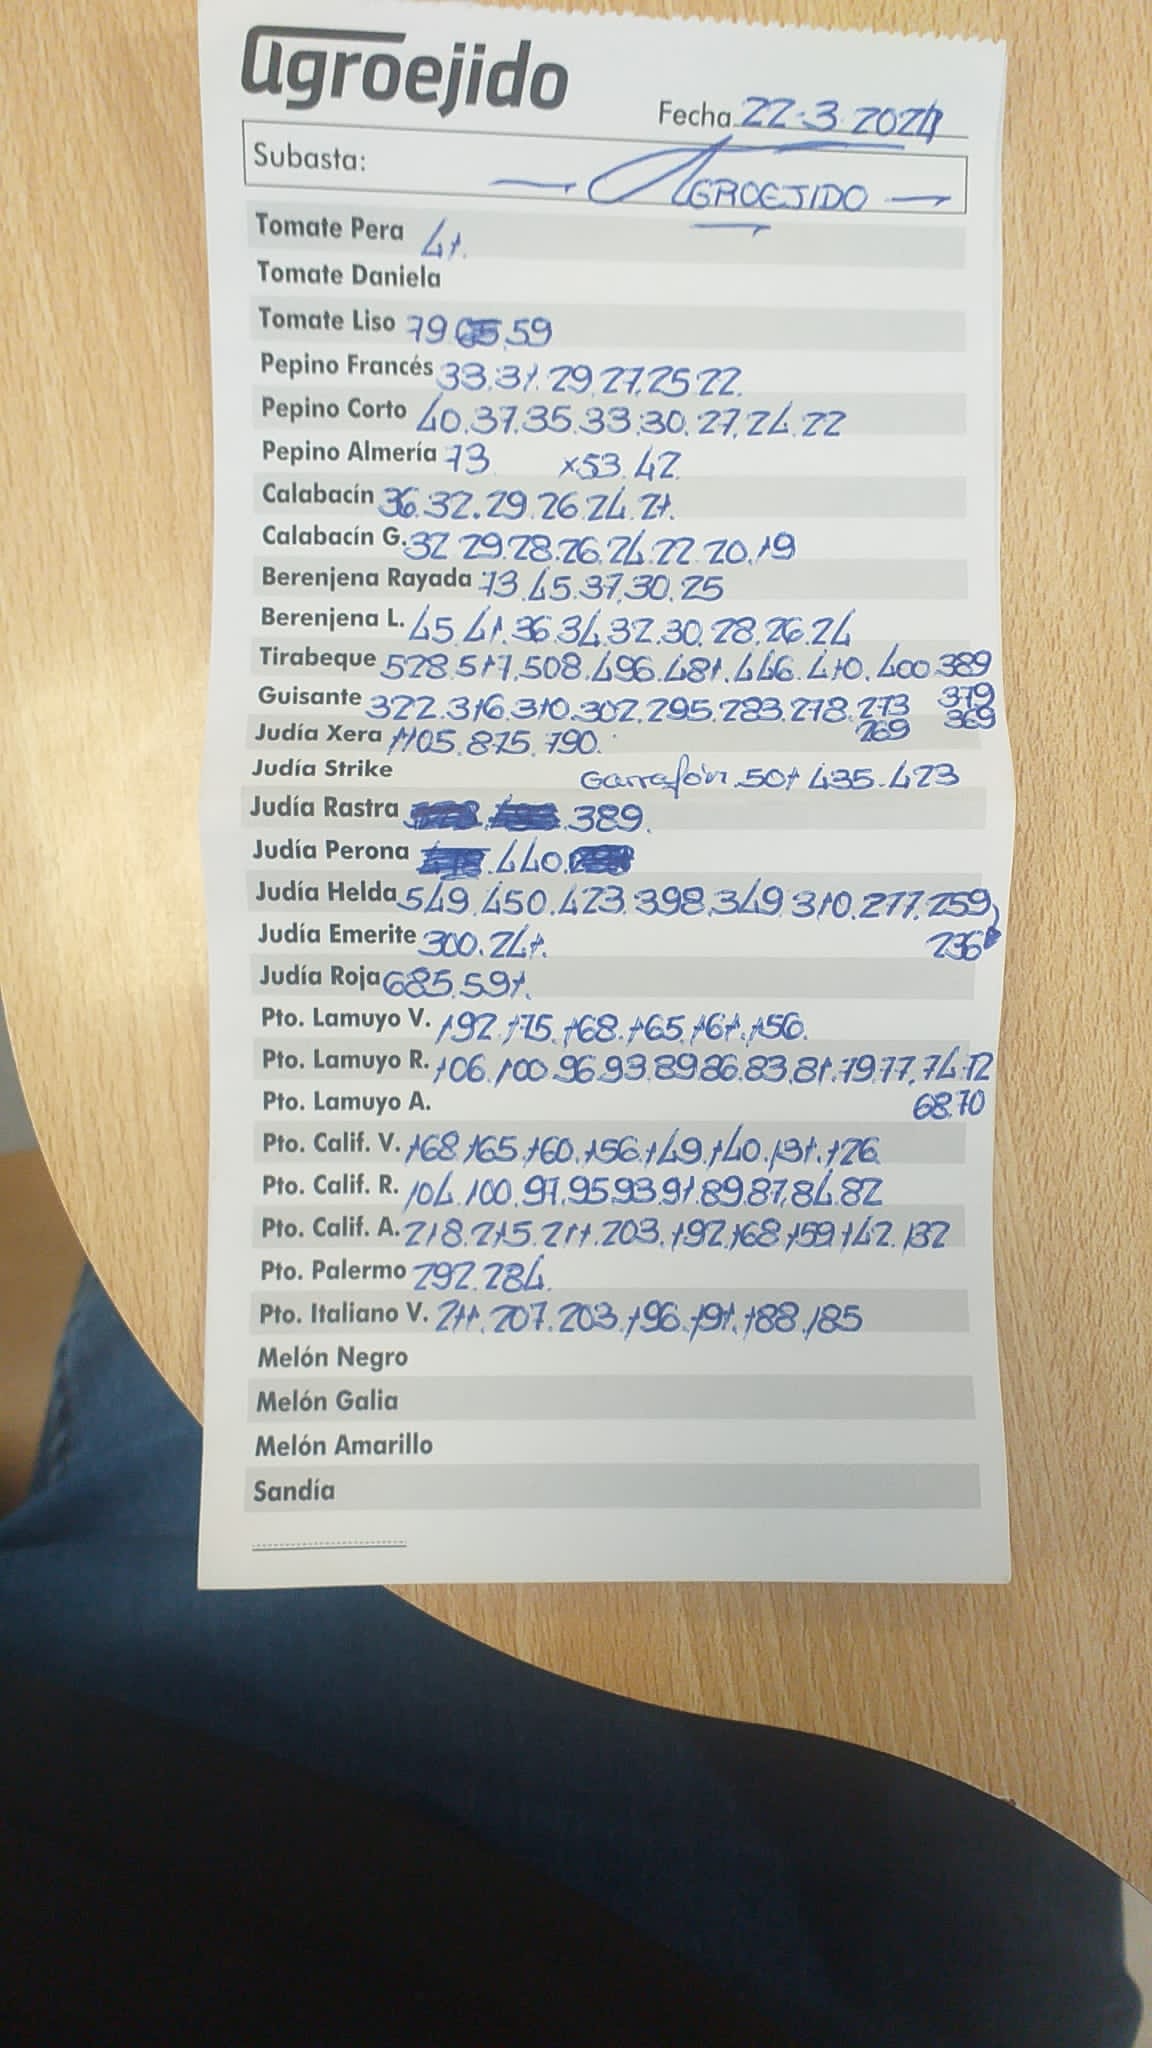 agroejido
Fecha 22-3-2024
Subasta: AGROEJIDO
Tomate Pera 41.
Tomate Daniela
Tomate Liso 79 59
Pepino Francés 33.31.29.27.25 22.
Pepino Corto 40.37.35.33.30.27.24.22
Pepino Almería 73 x53.42
Calabacín 36.32.29.26.24.21.
Calabacín G. 32 29.28.26.24.22 20.19
Berenjena Rayada 73.45.37.30.25
Berenjena L. 45.41.36.34.32.30.28.26.24
Tirabeque 528.517.508.496.481.446.410.400.389
379
Guisante 322.316.310.302.295.283.278.273
369
269
Judía Xera 1105.875.790.
Judía Strike Garrafón.501 435.423
Judía Rastra 389.
Judía Perona .440.
Judía Helda 549.450.423.398.349.310.277.259
236
Judía Emerite 300.241.
Judía Roja 685.591.
Pto. Lamuyo V. 192.175.168.165.161.156.
Pto. Lamuyo R. 106.100.96.93.89.86.83.81.79.77.74.72
68.70
Pto. Lamuyo A.
Pto. Calif. V. 168.165.160.156.149.140.131.126.
Pto. Calif. R. 104.100.97.95.93.91.89.87.84.82
Pto. Calif. A. 218.215.211.203.192.168.159.142.132
Pto. Palermo 292.284.
Pto. Italiano V. 211.207.203.196.191.188.185
Melón Negro
Melón Galia
Melón Amarillo
Sandía